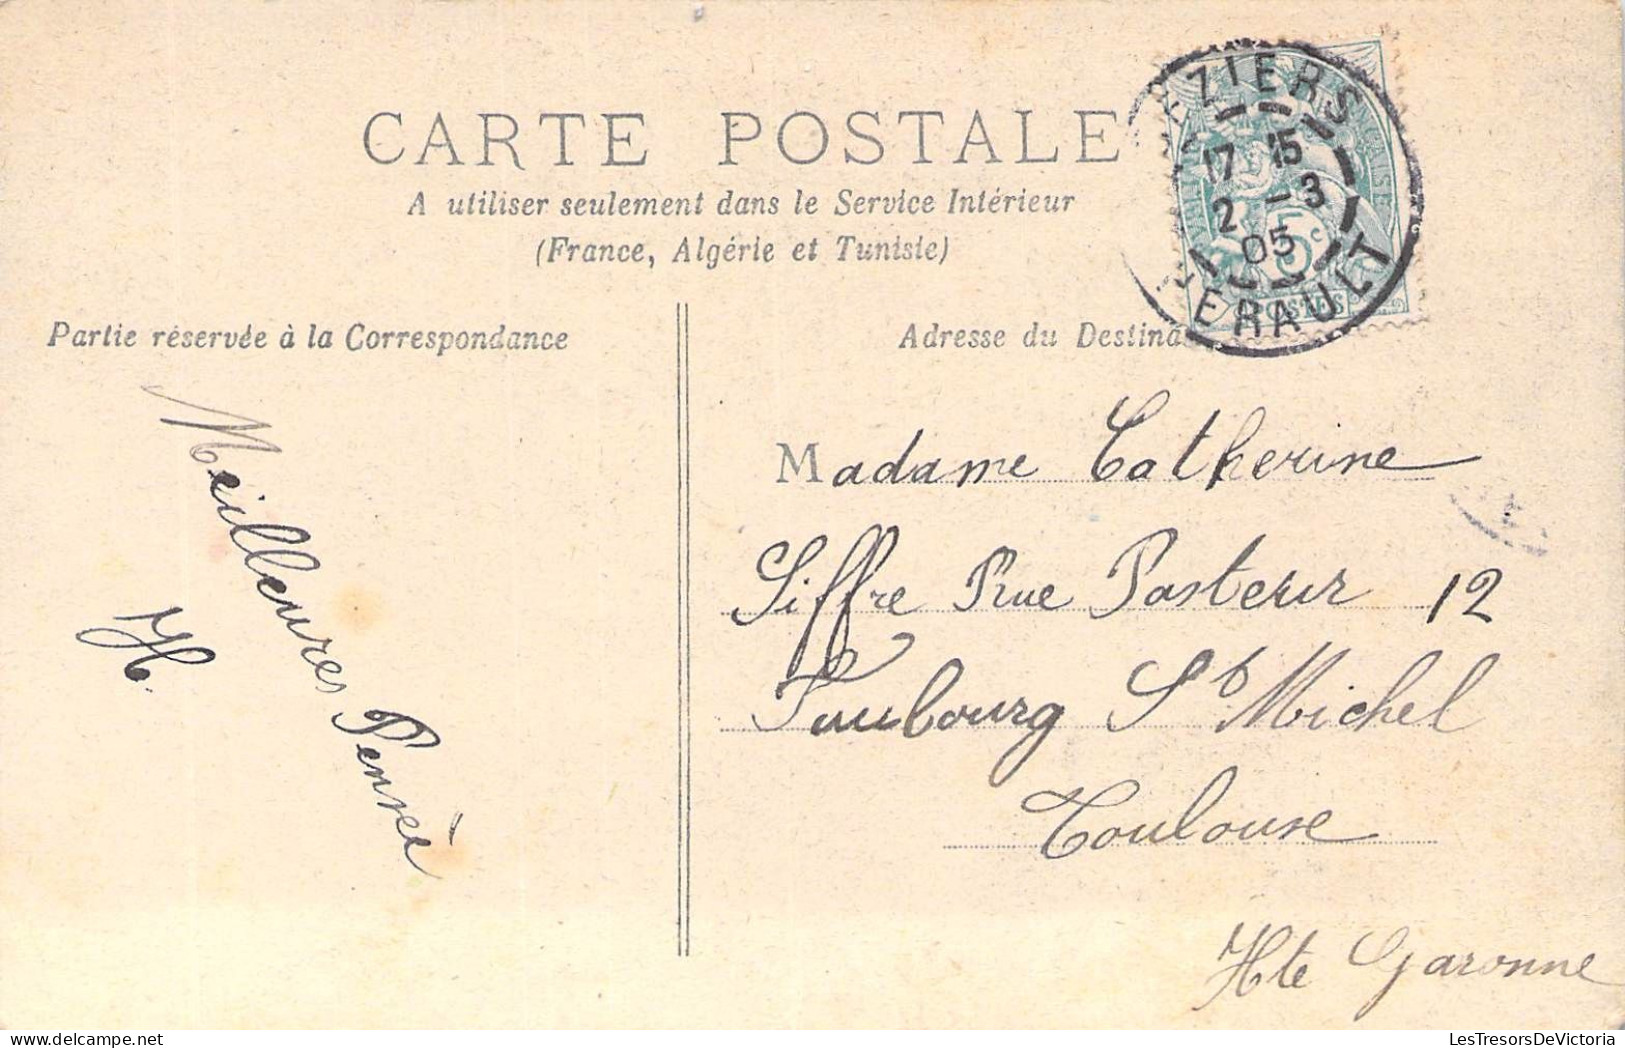 CARTE POSTALE
A utiliser seulement dans le Service Intérieur
(France, Algérie et Tunisie)
BEZIERS
17 15
2 -3
05
HERAULT
5c
POSTES
Partie réservée à la Correspondance
Adresse du Destina
Meilleures Pensée
H.
Madame Catherine
Siffre Rue Pasteur 12
Faubourg St Michel
Toulouse
Hte Garonne
LesTresorsDeVictoria